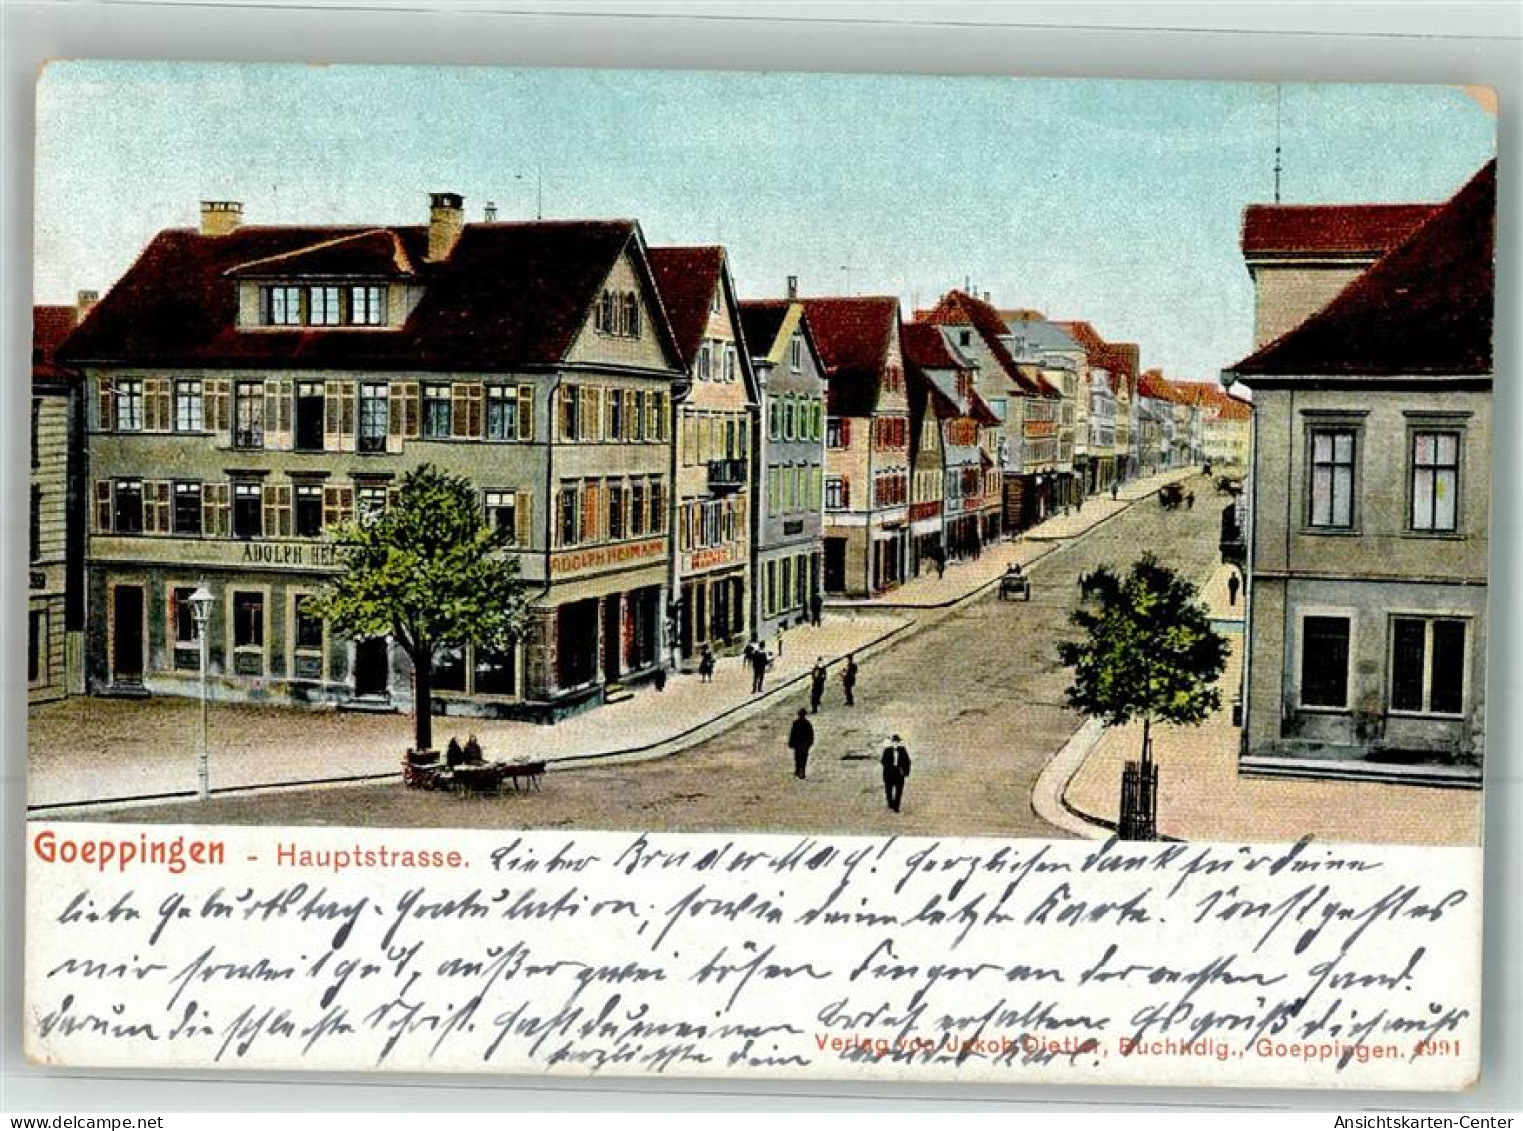 ADOLPH HEI
ADOLPH HEIMANN
Goeppingen - Hauptstrasse. Lieber Bruder Mach! Herzlichen Dank für deine
liebe Geburtstag-Gratulation, sowie deine letzte Karte. Sonst geht es
mir soweit gut, außer zwei bösen Finger an der rechten Hand.
darum die schlechte Schrift. Hast du meinen Brief erhalten. Es grüßt dich aufs
herzlichste dein Bruder
Verlag von Jakob Dietler, Buchhdlg., Goeppingen. 4991
Ansichtskarten-Center